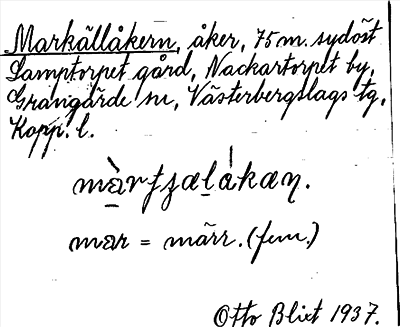 Markällåkern, åker, 75 m. sydöst
Lamptorpet gård, Nackartorpet by,
Grangärde sn, Västerbergslags tg,
Kopp. l.
mar = märr. (fem.)
Otto Blixt 1937.